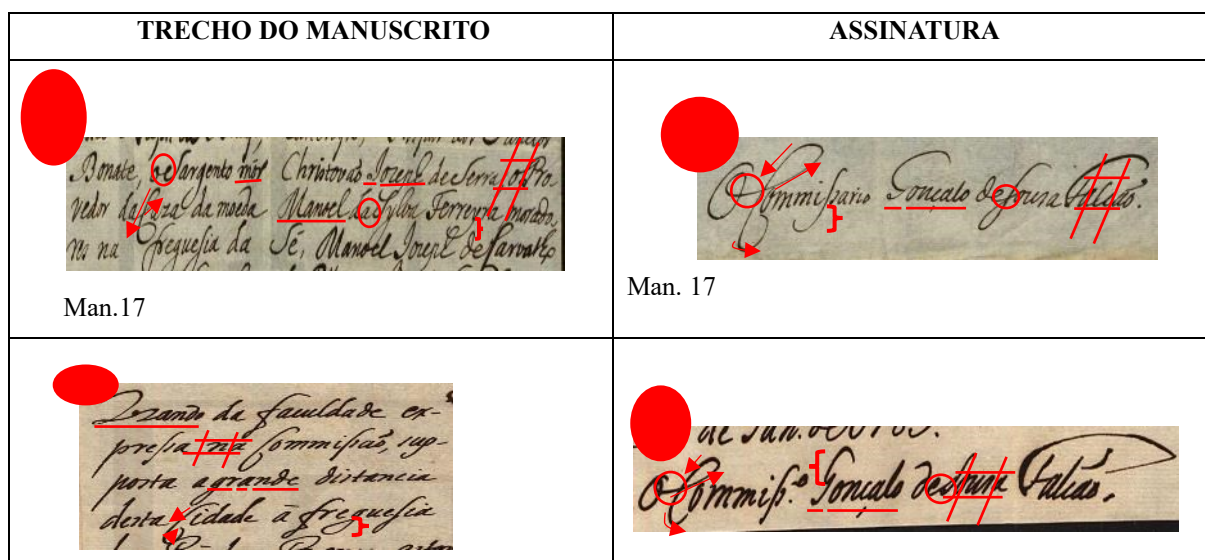 TRECHO DO MANUSCRITO
ASSINATURA
Bonate, o Sargento mór Christovaõ Joseph de Serra o Pro
vedor da Caza da moeda Manoel da Sylva Ferreyra morado
res na freguesia da Sé, Manoel Joseph de Carvalho
Man.17
O Commissario Gonçalo de Souza Falcaõ.
Man. 17
Uzando da faculdade ex-
pressa na Commissaõ, sup-
posta a grande distancia
desta Cidade â freguesia
de Jan.
O Commiss.º Gonçalo de Souza Falcaõ.